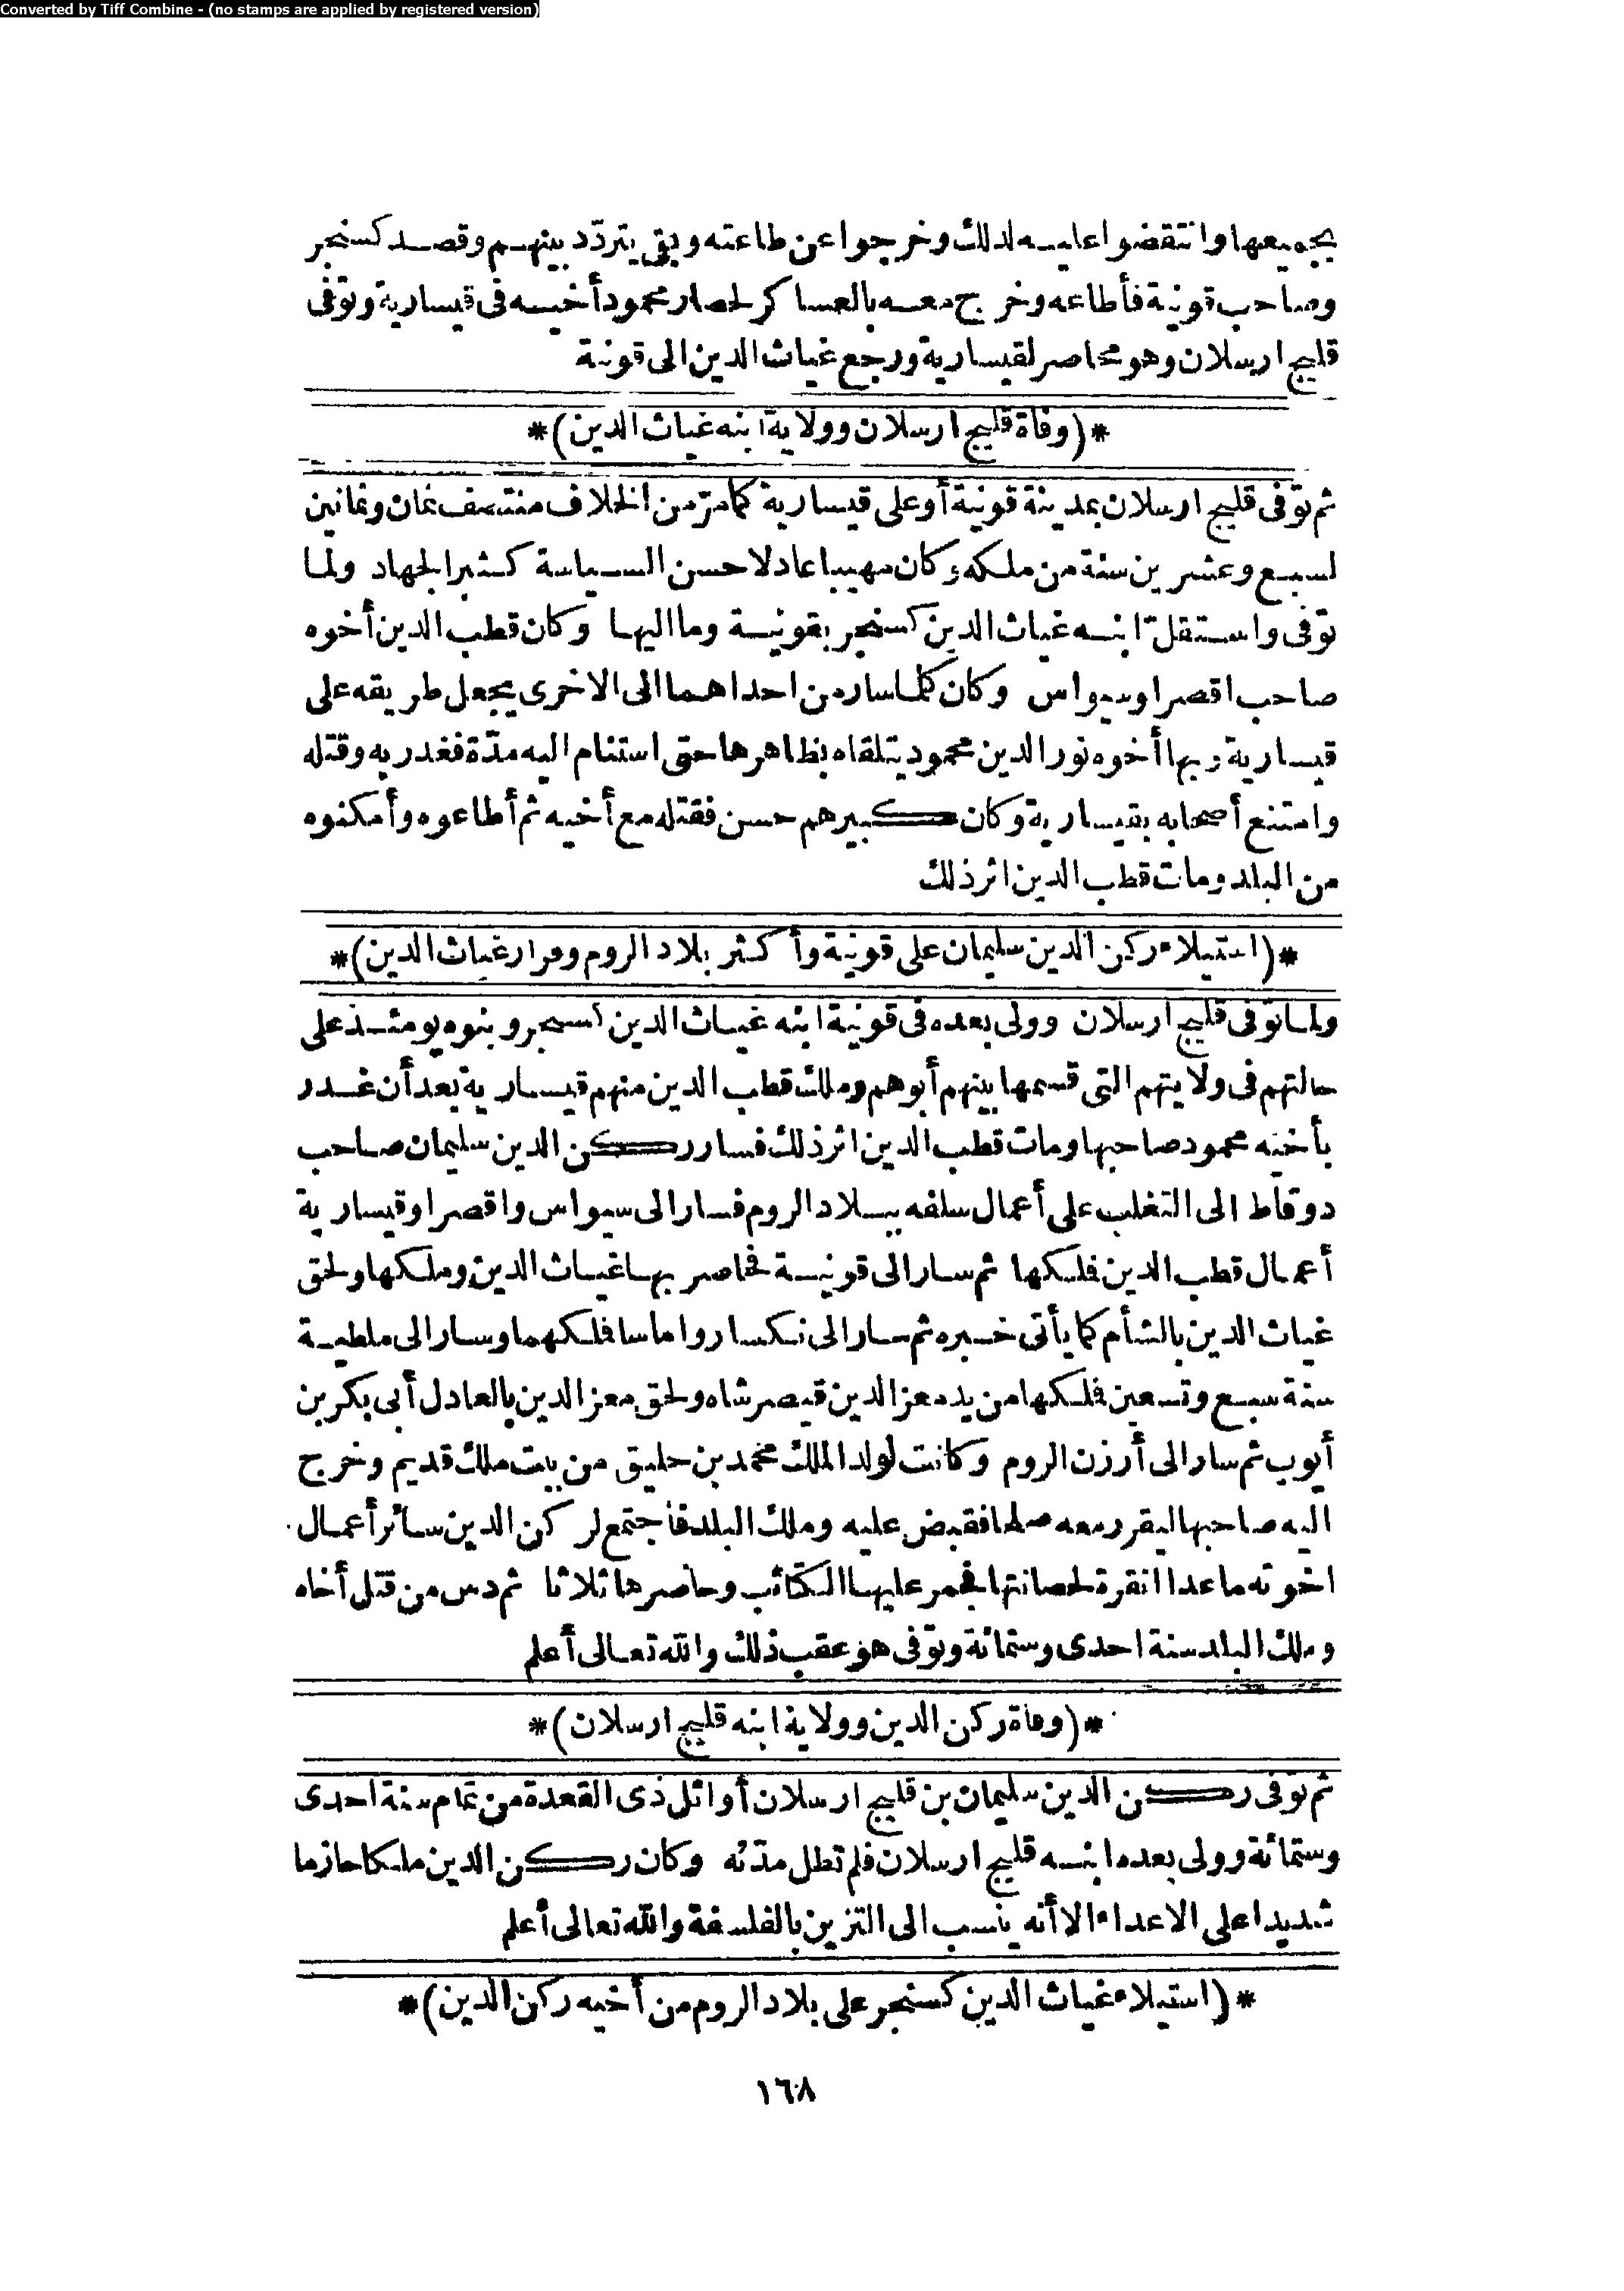 Converted by Tiff Combine - (no stamps are applied by registered version)
بجميعها وانتقضوا عليه لذلك وخرجوا عن طاعته وبقي يتردّد بينهم وقصد كسنجر
وصاحب قونية فأطاعه وخرج معه بالعساكر لحصار محمود أخيه فى قيسارية وتوفى
قليج ارسلان وهو محاصر لقيسارية ورجع غياث الدين الى قونية
*(وفاة قليج ارسلان وولاية ابنه غياث الدين)*
ثم توفى قليج ارسلان بمدينة قونية أو على قيسارية كما مرّ من الخلاف منتصف ثمان وثمانين
لسبع وعشرين سنة من ملكه وكان مهيبا عادلا حسن السياسة كثير الجهاد ولما
توفى واستقلّ ابنه غياث الدين كسنجر بقونية وما اليها وكان قطب الدين أخوه
صاحب اقصرا وسيواس وكان كلما سار من احداهما الى الاخرى يجعل طريقه على
قيسارية وبها أخوه نور الدين محمود يتلقاه بظاهرها حتى استنام اليه مدّة فغدر به وقتله
وامتنع أصحابه بقيسارية وكان كبيرهم حسن فقتله مع أخيه ثم أطاعوه وأمكنوه
من البلد ومات قطب الدين اثر ذلك
*(استيلاء ركن الدين سليمان على قونية وأكثر بلاد الروم وفرار غياث الدين)*
ولما توفى قليج ارسلان وولى بعده فى قونية ابنه غياث الدين كسنجر وبنوه يومئذ على
حالتهم فى ولايتهم التى قسمها بينهم أبوهم وملك قطب الدين منهم قيسارية بعد أن غدر
بأخيه محمود صاحبها ومات قطب الدين اثر ذلك فسار ركن الدين سليمان صاحب
دوقاط الى التغلب على أعمال سلفه ببلاد الروم فسار الى سيواس واقصرا وقيسارية
أعمال قطب الدين فملكها ثم سار الى قونية فحاصر بها غياث الدين وملكها ولحق
غياث الدين بالشأم كما يأتى خبره ثم سار الى نكسار واماسا فملكهما وسار الى ملطية
سنة سبع وتسعين فملكها من يد معز الدين قيصر شاه ولحق معز الدين بالعادل أبى بكر بن
أيوب ثم سار الى أرزن الروم وكانت لولد الملك محمد بن حليق من بيت ملك قديم وخرج
اليه صاحبها ليقرر معه صلحا فقبض عليه وملك البلد فاجتمع لركن الدين سائر أعمال
اخوته ما عدا انقرة لحصانتها فجمر عليها الكتائب وحاصرها ثلاثا ثم دس من قتل أخاه
وملك البلد سنة احدى وستمائة وتوفى هو عقب ذلك والله تعالى أعلم
*(وفاة ركن الدين وولاية ابنه قليج ارسلان)*
ثم توفى ركن الدين سليمان بن قليج ارسلان أوائل ذى القعدة من تمام سنة احدى
وستمائة وولى بعده ابنه قليج ارسلان فلم تطل مدّته وكان ركن الدين ملكا حازما
شديدا على الاعداء الا أنه ينسب الى التزين بالفلسفة والله تعالى أعلم
*(استيلاء غياث الدين كسنجر على بلاد الروم من أخيه ركن الدين)*
١٦٨